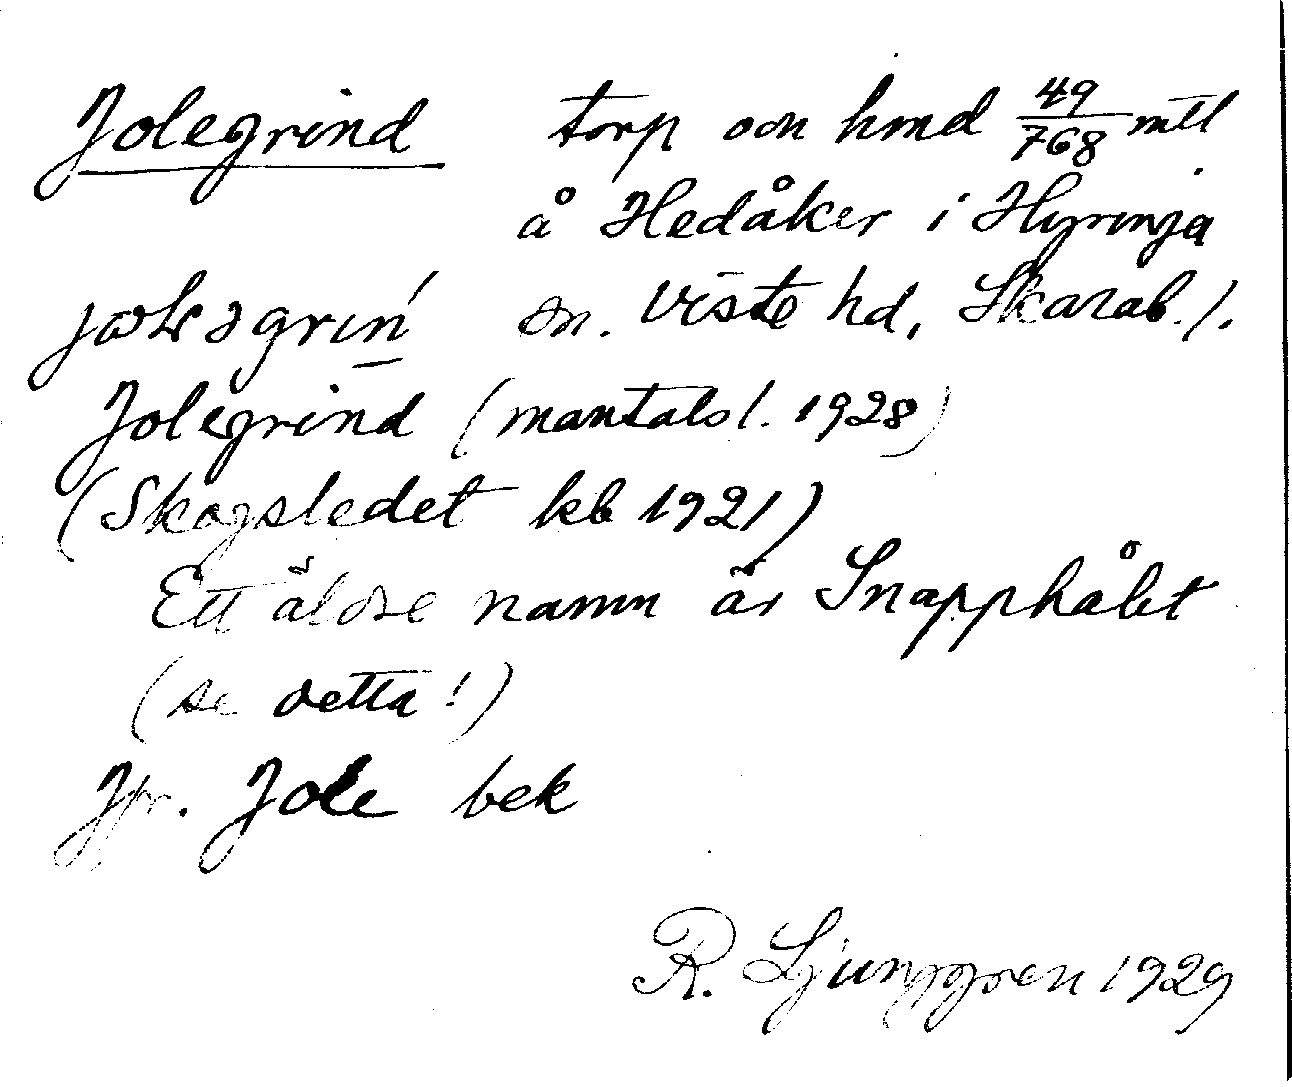 Jolegrind torp och hmd 49/768 mtl
å Hedåker i Hyringa
sn. Viste hd, Skarab. l.
Jolegrind (mantalsl. 1928)
(Skogsledet kb 1921)
Ett äldre namn är Snapphålet
(se detta!)
Jfr. Jole bek
R. Ljunggren 1929